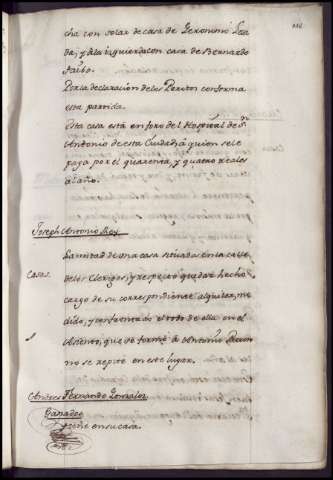 cha con solar de casa de Geronimo Loza
da; y a la izquierda con casa de Bernardo
Por la declaracion de los Peritos conforma
esta partida.
Esta casa està en foro del Hospital de Sn.
Antonio de esta Ciudad à quien se le
paga por el quarenta, y quatro reales
al año.
Joseph Antonio Rey
Casas. La mitad de una casa situada en la calle
de los Clerigos, y respecto quedar hecho
cargo de su correspondiente alquiler, me
dido, y confrontado el todo de ella en el
Asiento, que se formó à Antonio
no se repite en este lugar.
Andres Fernando Gonzalez
tiene en su casa.